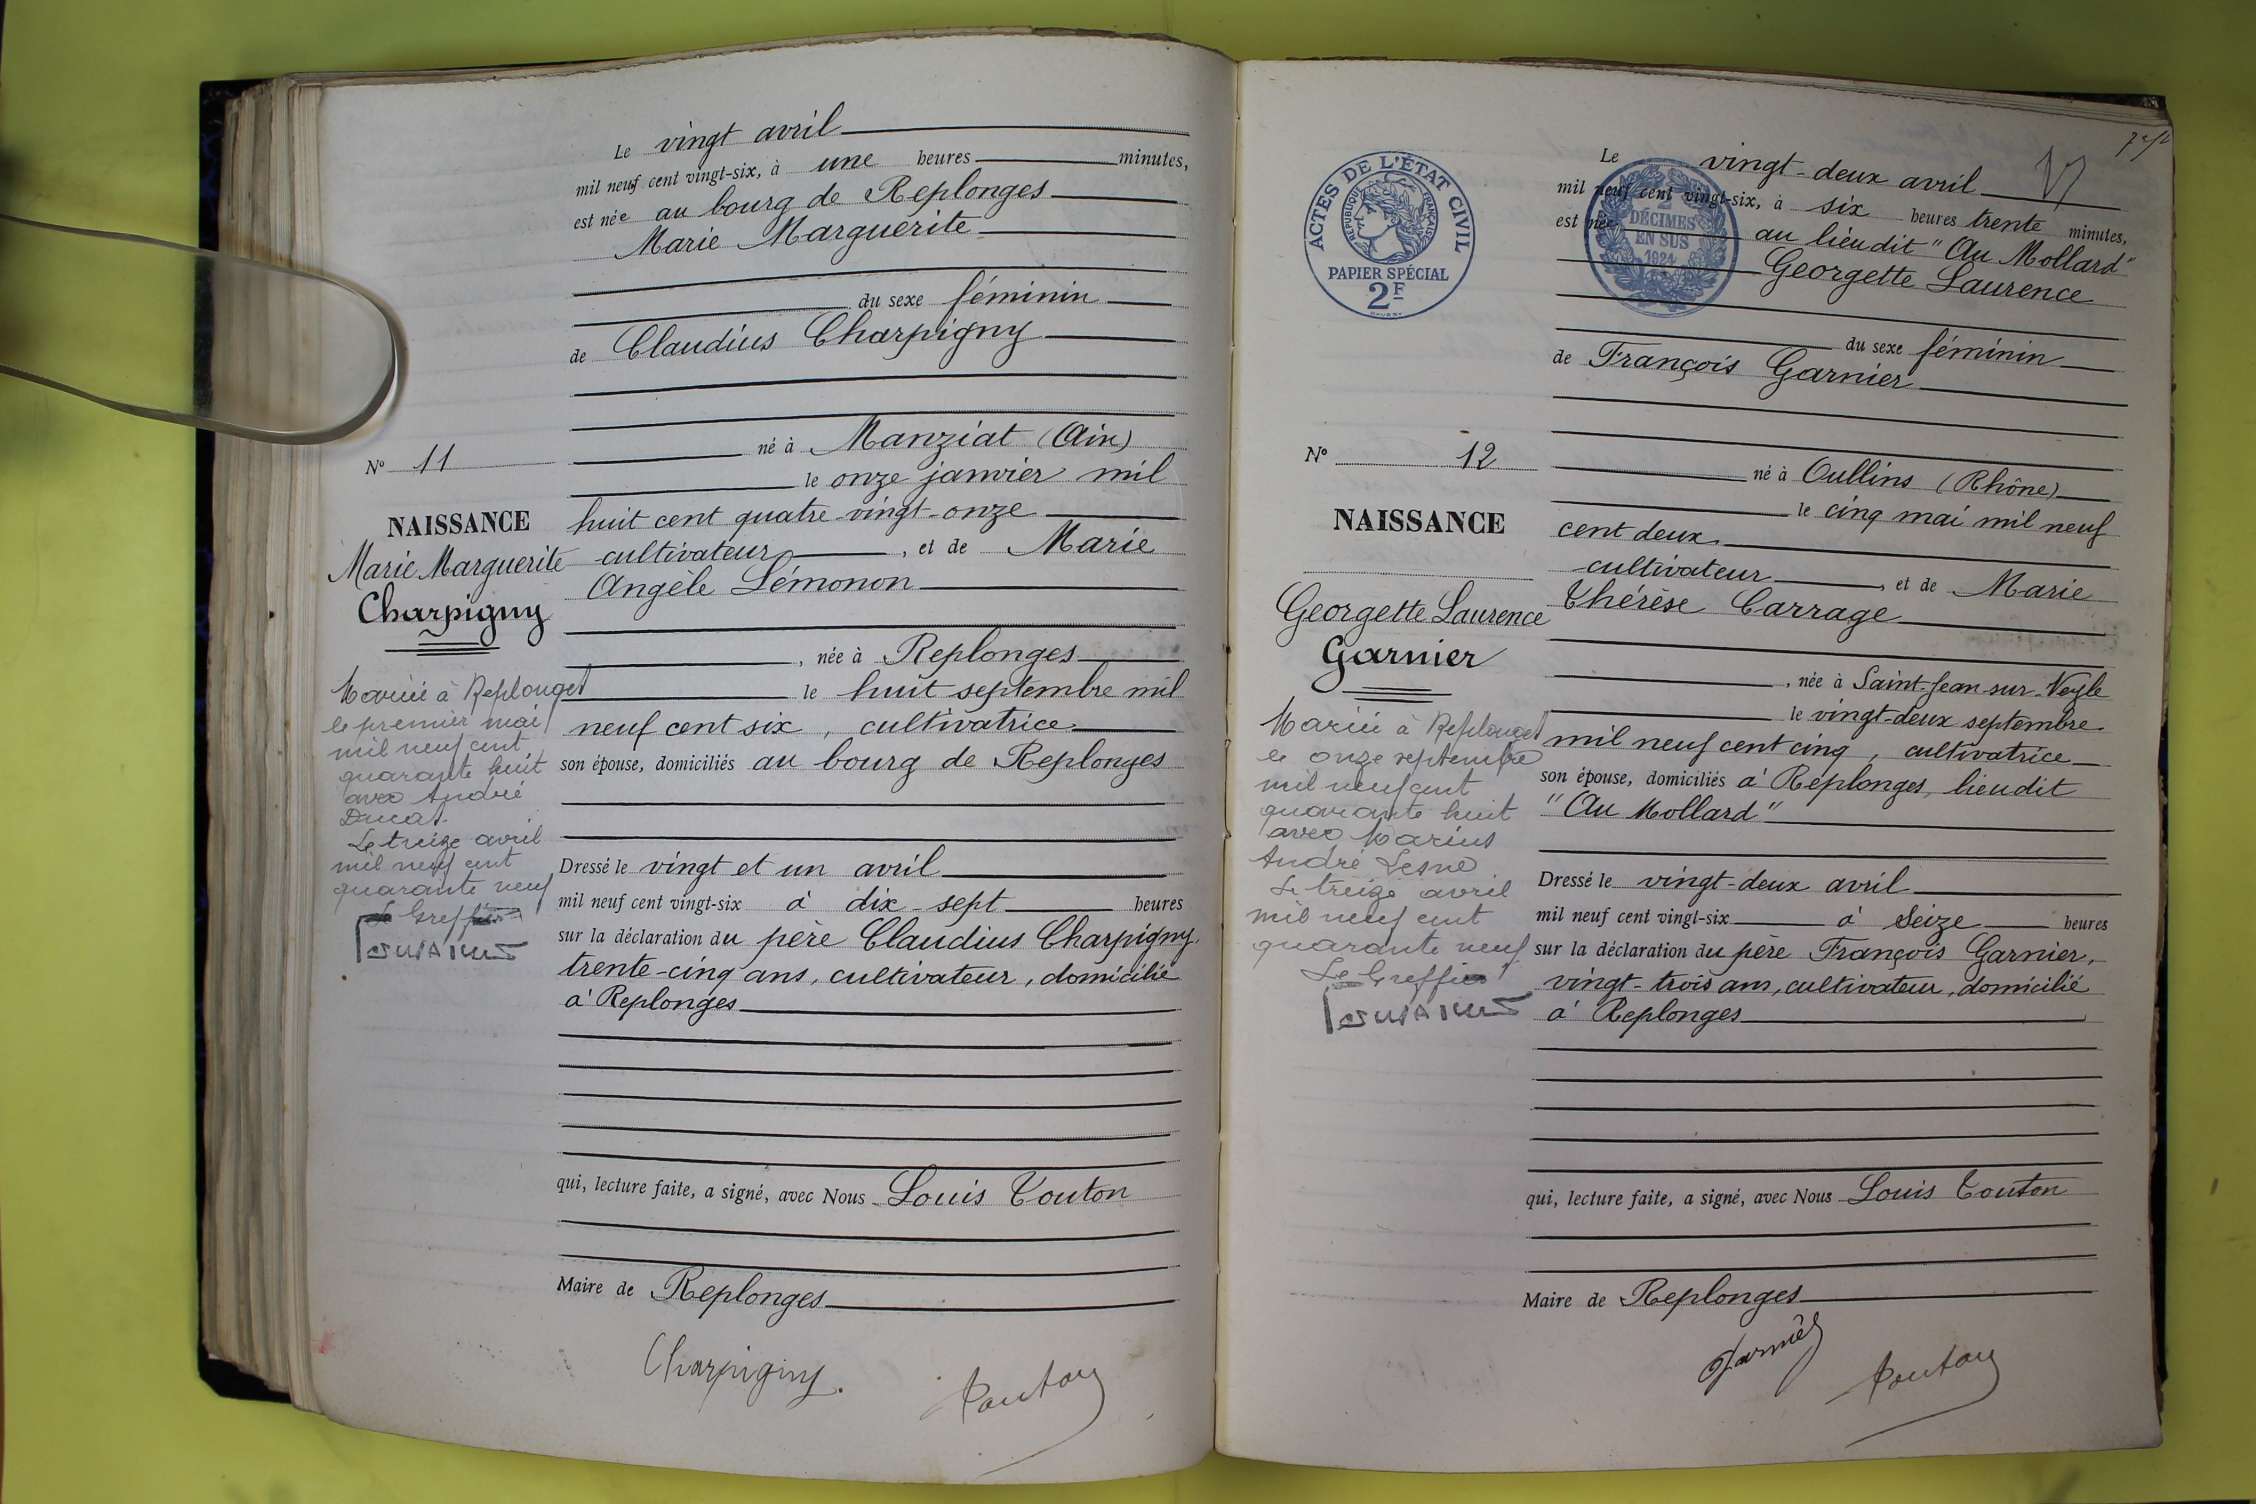 Le vingt avril
mil neuf cent vingt-six, à une heures minutes,
est née au bourg de Replonges
Marie Marguerite
du sexe féminin
de Claudius Charpigny
né à Manziat (Ain)
le onze janvier mil
huit cent quatre-vingt-onze
cultivateur, et de Marie
Angèle Lémonon
, née à Replonges
le huit septembre mil
neuf cent six, cultivatrice
son épouse, domiciliés au bourg de Replonges
Dressé le vingt et un avril
mil neuf cent vingt-six à dix-sept heures
sur la déclaration du père Claudius Charpigny,
trente-cinq ans, cultivateur, domicilié
à Replonges
qui, lecture faite, a signé, avec Nous Louis Touton
Maire de Replonges
Charpigny.
Touton
No 11
NAISSANCE
Marie Marguerite
Charpigny
Mariée à Replonges
le premier mai
mil neuf cent
quarante huit
avec André
Ducat.
Le treize avril
mil neuf cent
quarante neuf
Le Greffier
Le vingt-deux avril
mil neuf cent vingt-six, à six heures trente minutes,
est née au lieudit "Au Mollard"
Georgette Laurence
du sexe féminin
de François Garnier
né à Oullins (Rhône)
le cinq mai mil neuf
cent deux
cultivateur, et de Marie
Thérèse Carrage
, née à Saint-Jean-sur-Veyle
le vingt-deux septembre
mil neuf cent cinq, cultivatrice
son épouse, domiciliés à Replonges, lieudit
"Au Mollard"
Dressé le vingt-deux avril
mil neuf cent vingt-six à seize heures
sur la déclaration du père François Garnier,
vingt-trois ans, cultivateur, domicilié
à Replonges
qui, lecture faite, a signé, avec Nous Louis Touton
Maire de Replonges
Garnier
Touton
ACTES DE L'ÉTAT CIVIL
RÉPUBLIQUE FRANÇAISE
PAPIER SPÉCIAL
2F
2
DÉCIMES
EN SUS
1924
No 12
NAISSANCE
Georgette Laurence
Garnier
Mariée à Replonges
le onze septembre
mil neuf cent
quarante huit
avec Marius
André Lesne
Le treize avril
mil neuf cent
quarante neuf
Le Greffier